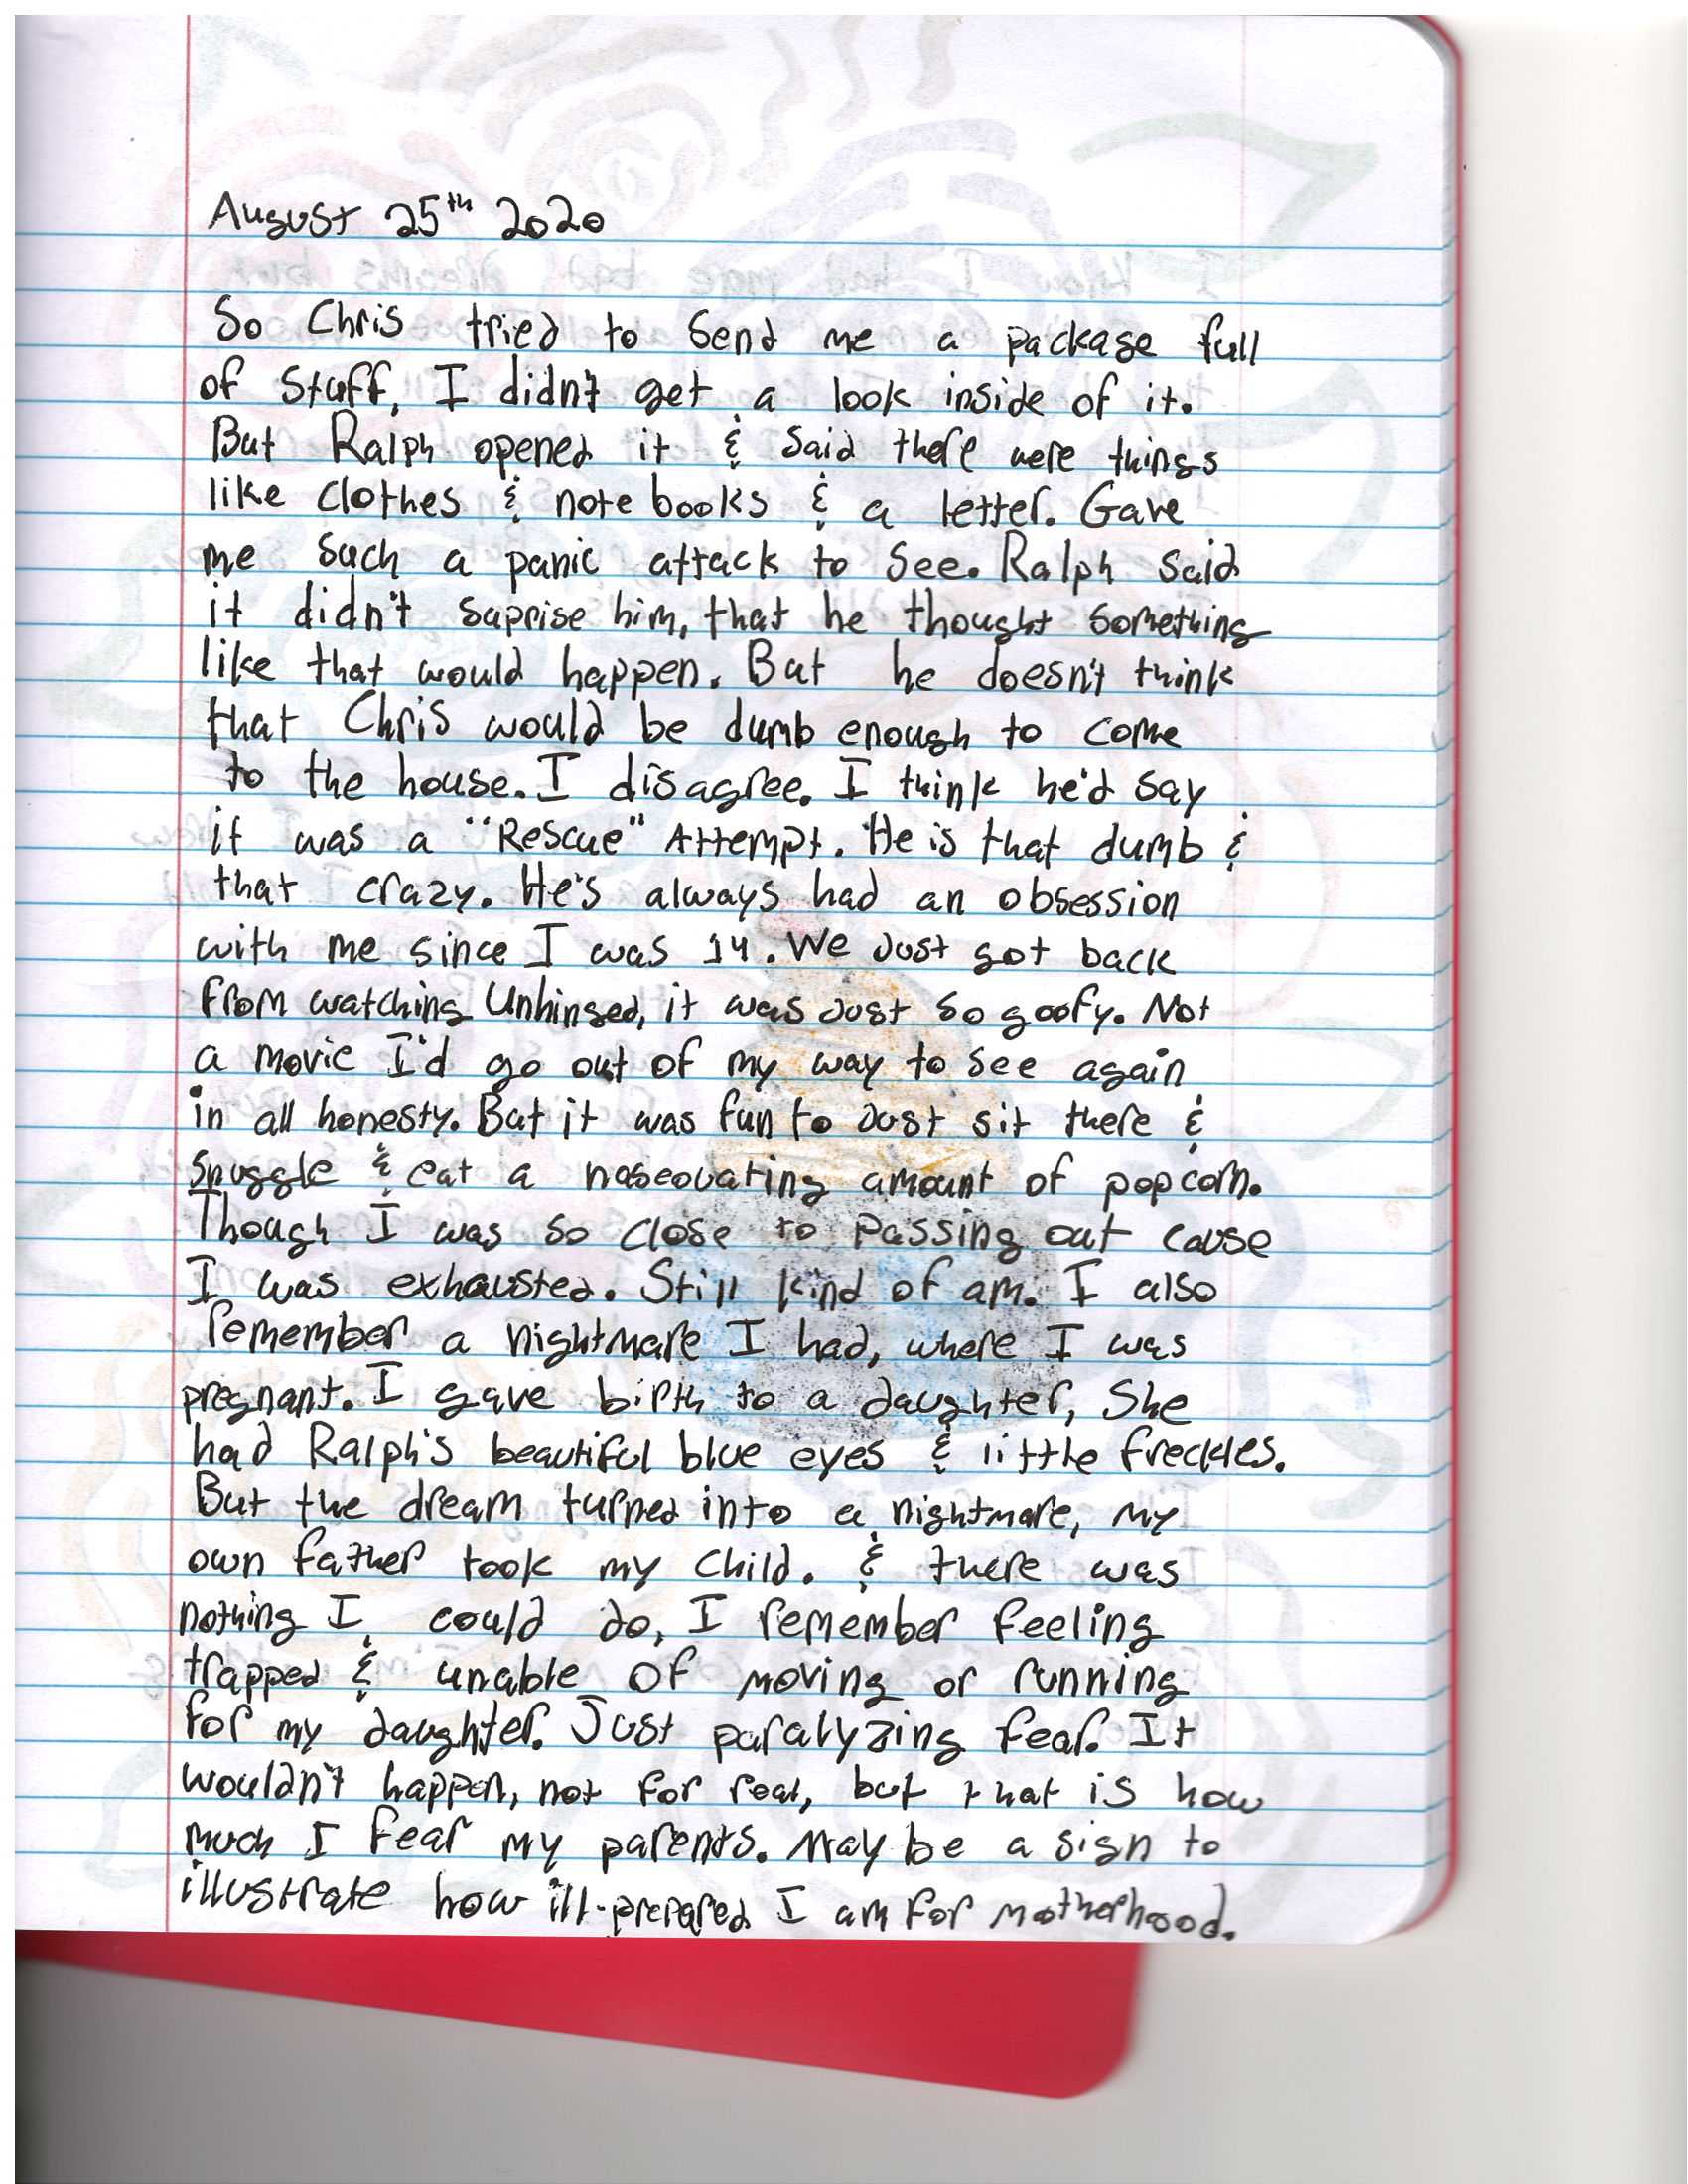 August 25th 2020
So Chris tried to send me a package full
of stuff, I didn't get a look inside of it.
But Ralph opened it & said there were things
like clothes & note books & a letter. Gave
me such a panic attack to see. Ralph said
it didn't saprise him, that he thought something
like that would happen. But he doesn't think
that Chris would be dumb enough to come
to the house. I disagree. I think he'd say
it was a "Rescue" Attempt. He is that dumb &
that crazy. He's always had an obsession
with me since I was 14. We Just got back
from watching Unhinged, it was Just so goofy. Not
a movie I'd go out of my way to see again
in all honesty. But it was fun to Just sit there &
snuggle & eat a naseouating amount of popcorn.
Though I was so close to passing out cause
I was exhausted. Still kind of am. I also
remember a nightmare I had, where I was
pregnant. I gave birth to a daughter, She
had Ralph's beautiful blue eyes & little freckles.
But the dream turned into a nightmare, my
own father took my child. & there was
nothing I could do, I remember feeling
trapped & unable of moving or running
for my daughter. Just paralyzing fear. It
wouldn't happen, not for real, but that is how
much I fear my parents. Maybe a sign to
illustrate how ill-prepared I am for motherhood.